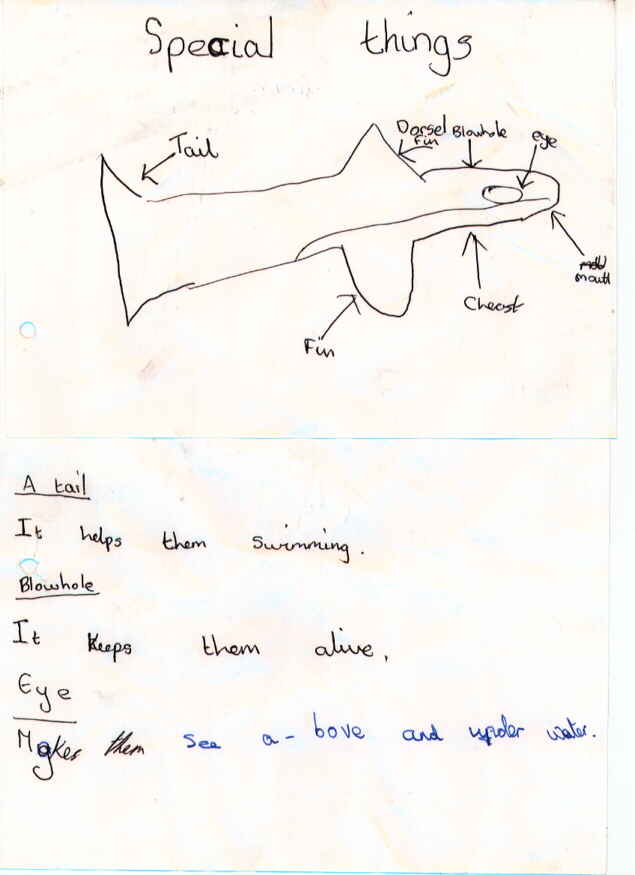 Special things
Tail
Dorsel
Fin
Blowhole
eye
mouth
Cheast
Fin
A tail
It helps them swimming.
Blowhole
It keeps them alive,
Eye
Makes them see a-bove and under water.